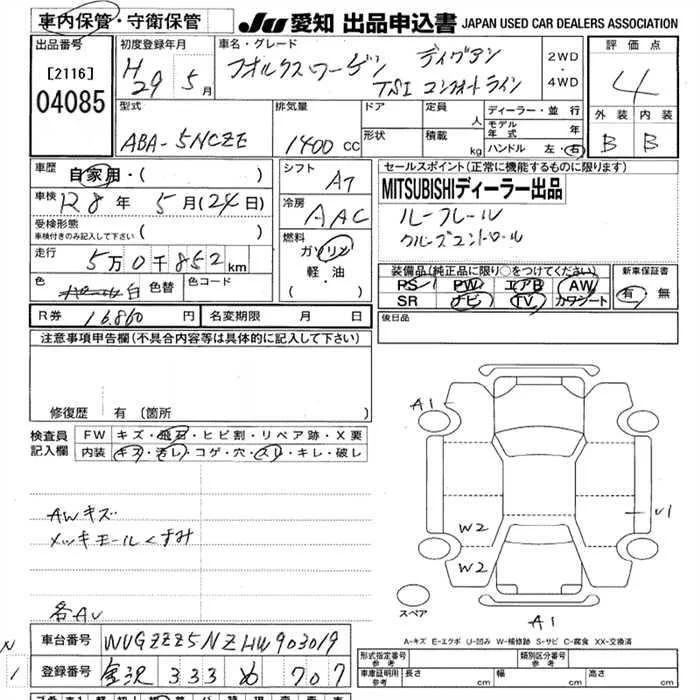 車内保管・守衛保管 JU 愛知 出品申込書 JAPAN USED CAR DEALERS ASSOCIATION
出品番号 初度登録年月 車名・グレード 評価点
[2116] H29 5月 フォルクスワーゲン ティグアン 2WD・4WD 4
04085 TSI コンフォートライン
型式 排気量 ドア 定員 人 ディーラー・並行 外装 内装
ABA-5NCZE 1400 CC 形状 積載 kg モデル年式 年 B B
ハンドル 左・右
車歴 自家用・( ) シフト AT セールスポイント(正常に機能するものに限ります)
車検 R8年 5月(24日) 冷房 AAC MITSUBISHIディーラー出品
受検形態 ルーフレール
車検付きのみ記入して下さい ( ) 燃料 クルーズコントロール
走行 5万0千852km ガソリン
軽・油
・( )
装備品(純正品に限り○をつけてください) 新車保証書
色 パール白 色替 色コード PS PW エアB AW 有・無
SR ナビ TV カワシート
R券 16,860円 名変期限 月 日 後日品
注意事項申告欄(不具合内容等は具体的に記入して下さい)
修復歴 有(箇所 )
検査員記入欄 FW キズ・飛石・ヒビ割・リペア跡・X要
内装 キズ・汚レ・コゲ・穴・スリ・キレ・破レ
A1
AWキズ
メッキモールくすみ
W2
W2
スペア
A1
各AU
A-キズ E-エクボ U-凹み W-補修跡 S-サビ C-腐食 XX-交換済
車台番号 WVGZZZ5NZHW903019
登録番号 金沢 333 め 707
形式指定番号 参考 類別区分番号 参考
車庫証明用 参考 長さ cm 幅 cm 高さ cm